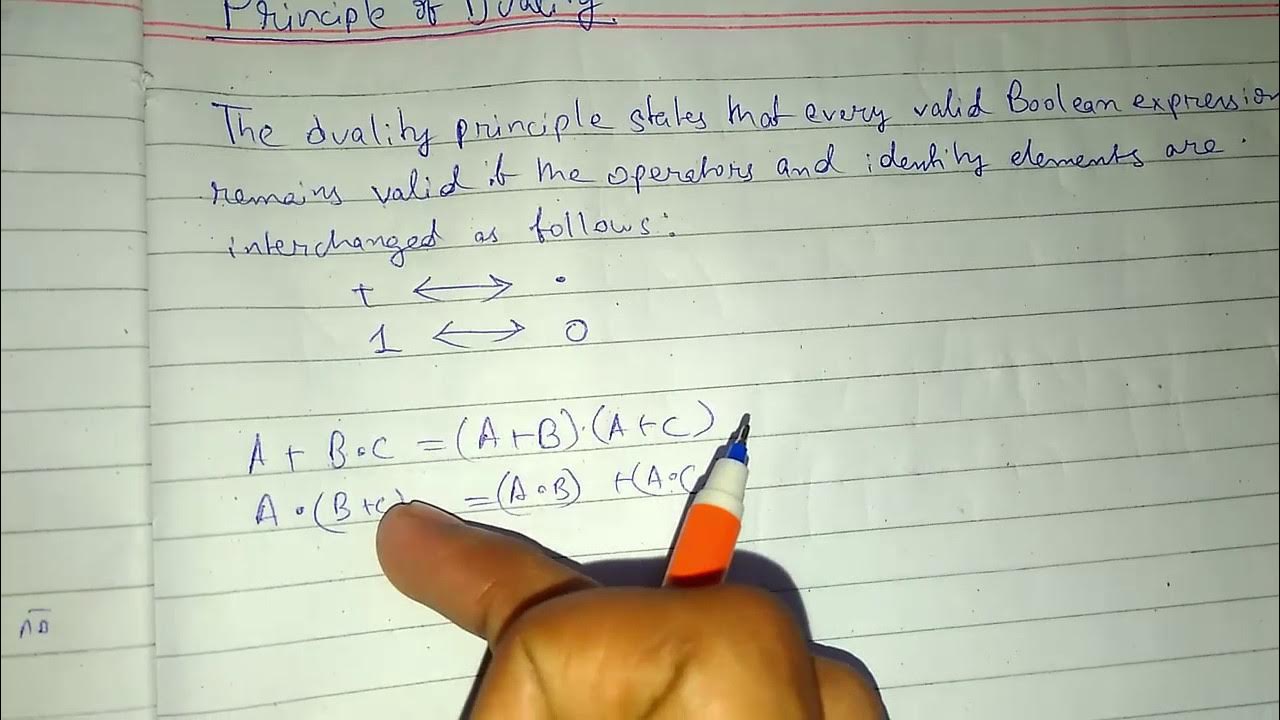 Principle of Duality.
The duality principle states that every valid Boolean expression
remains valid if the operators and identity elements are
interchanged as follows:
+ ⟷ •
1 ⟷ 0
A + B•C = (A+B)·(A+C)
A •(B+C) =(A•B) +(A•C